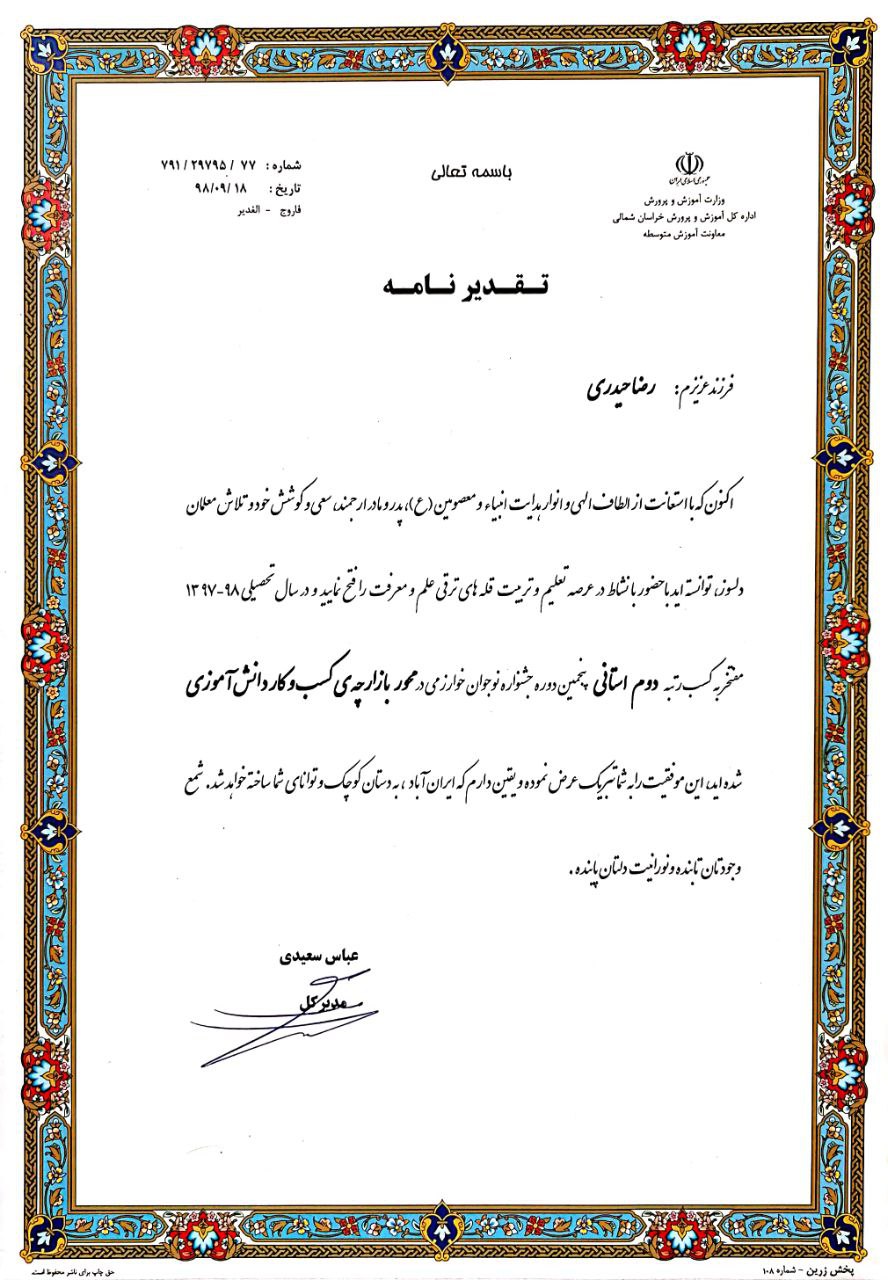 باسمه تعالی
جمهوری اسلامی ایران
وزارت آموزش و پرورش
اداره کل آموزش و پرورش خراسان شمالی
معاونت آموزش متوسطه
شماره : ۷۷ / ۲۹۷۹۵ / ۷۹۱
تاریخ : ۹۸/۰۹/۱۸
فاروج - الغدیر
تـقـدیر نـامـه
فرزند عزیزم: رضا حیدری
اکنون که با استعانت از الطاف الهی و انوار هدایت انبیاء و معصومین (ع)، پدر و مادر ارجمند، سعی و کوشش خود و تلاش معلمان
دلسوز، توانسته اید با حضور با نشاط در عرصه تعلیم و تربیت قله های ترقی علم و معرفت را فتح نمایید و در سال تحصیلی ۹۸-۱۳۹۷
مفتخر به کسب رتبه دوم استانی پنجمین دوره جشنواره نوجوان خوارزمی در محور بازارچه ی کسب و کار دانش آموزی
شده اید، این موفقیت را به شما تبریک عرض نموده و یقین دارم که ایران آباد ، به دستان کوچک و توانای شما ساخته خواهد شد. شمع
وجودتان تابنده و نورانیت دلتان پاینده .
عباس سعیدی
مدیر کل
پخش زرین - شماره ۱۰۸
حق چاپ برای ناشر محفوظ است.